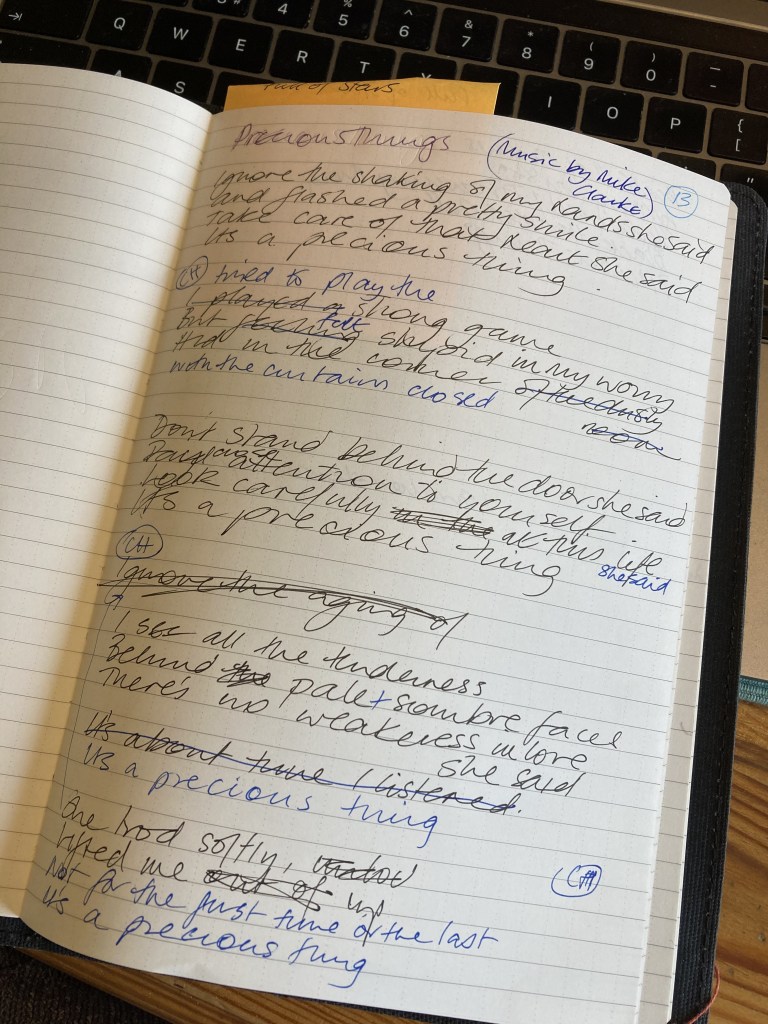 Q W E R T Y I O P
A S
4 5 6 7 8 9 0
^ & * ( ) _ -
{ [
Full of Stars
Precious Things
(Music by Mike Clarke)
13
Ignore the shaking of my hands she said
and flashed a pretty smile.
Take care of that heart she said
Its a precious thing.
CH
tried to play the
I played a strong game
But felt stupid in my worry
Hid in the corner of the dusty room
with the curtains closed
Dont stand behind the door she said
Pay attention to yourself
Look carefully in the at this life
Its a precious thing
she said
CH
Ignore the aging of
I see all the tenderness
Behind the pale + sombre faces
There's no weakness in love
she said
Its about time I listened.
Its a precious thing
She trod softly,
CH
Lifted me out of up
Not for the first time or the last
Its a precious thing